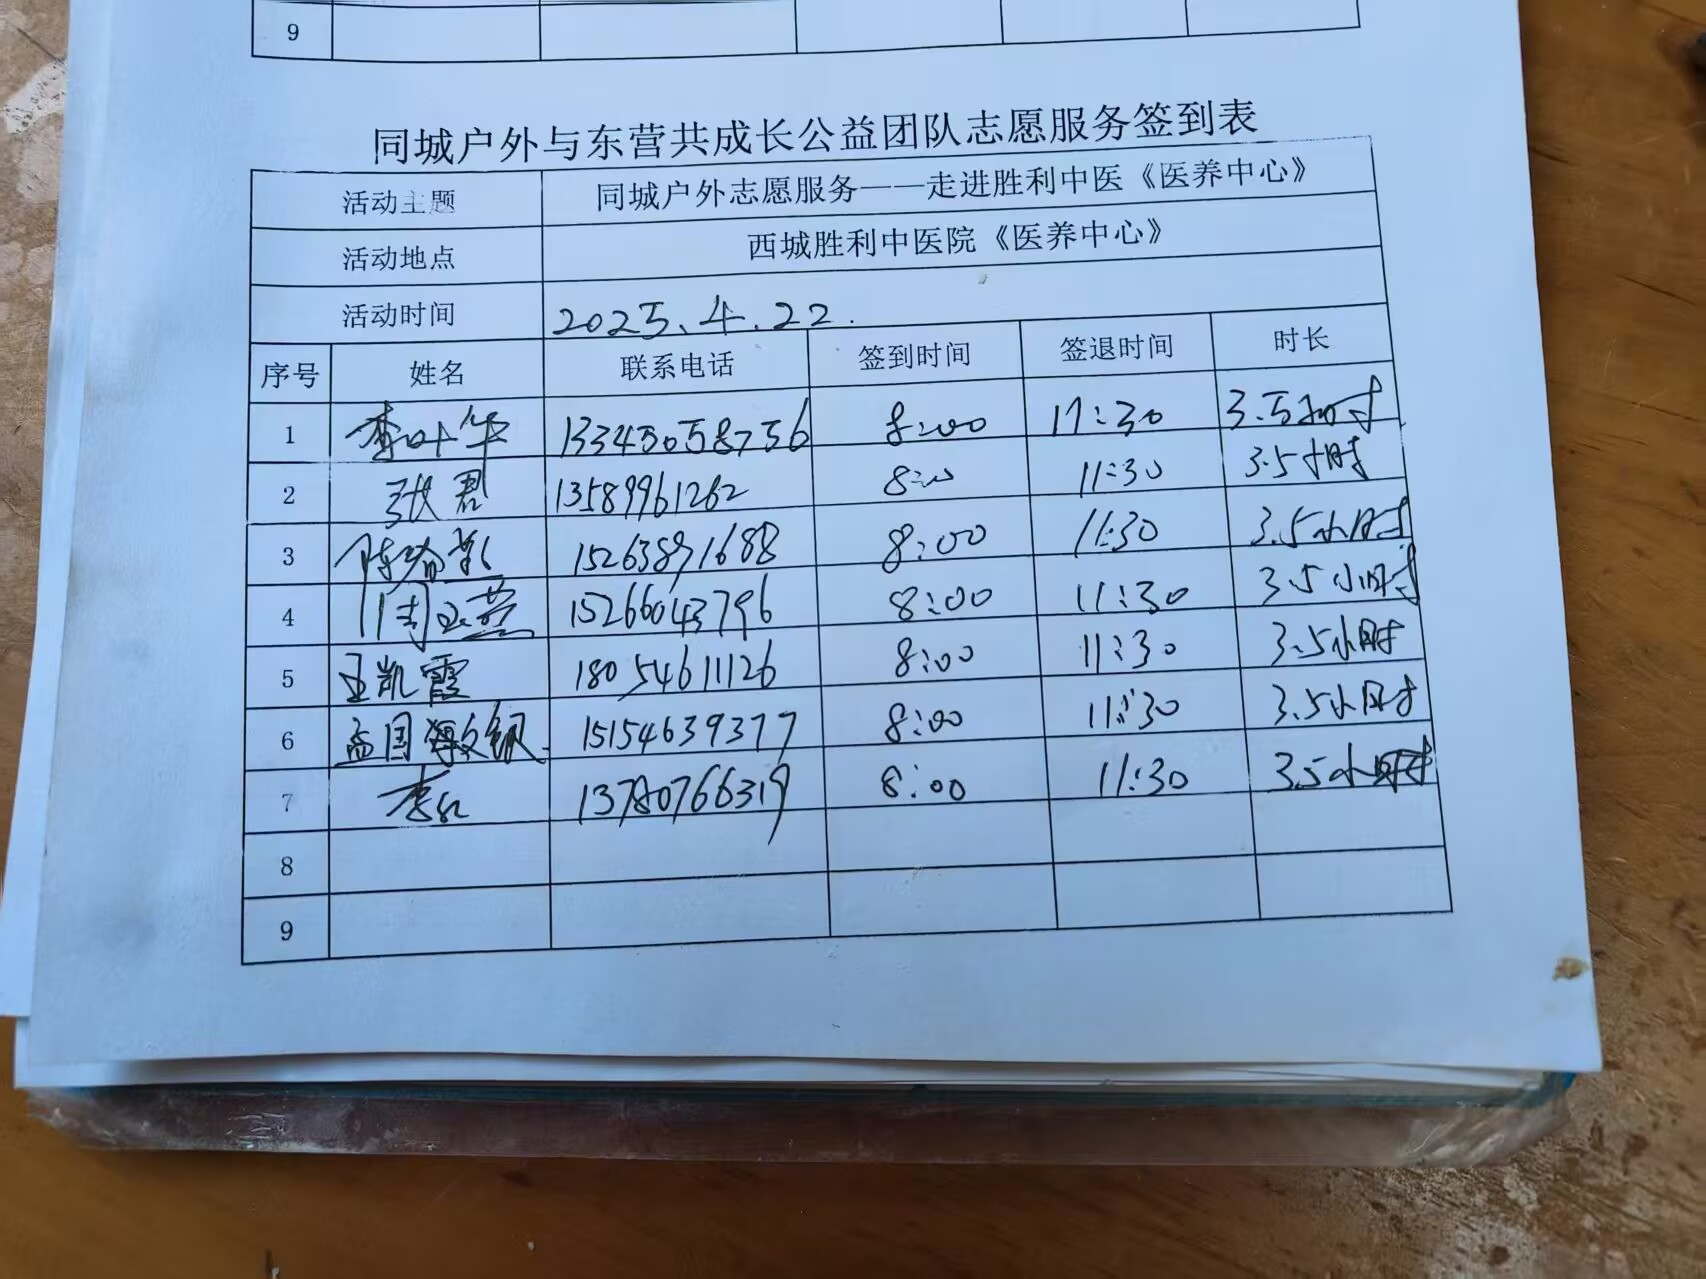 9
同城户外与东营共成长公益团队志愿服务签到表
活动主题 同城户外志愿服务——走进胜利中医《医养中心》
活动地点 西城胜利中医院《医养中心》
活动时间 2025.4.22.
序号 姓名 联系电话 签到时间 签退时间 时长
1 李叶华 8:00 11:30 3.5小时
2 张君 13589961262 8:00 11:30 3.5小时
3 15263891688 8:00 11:30 3.5小时
4 周玉燕 15266043796 8:00 11:30 3.5小时
5 王凯霞 18054611126 8:00 11:30 3.5小时
6 15154639377 8:00 11:30 3.5小时
7 李红 13780766319 8:00 11:30 3.5小时
8
9